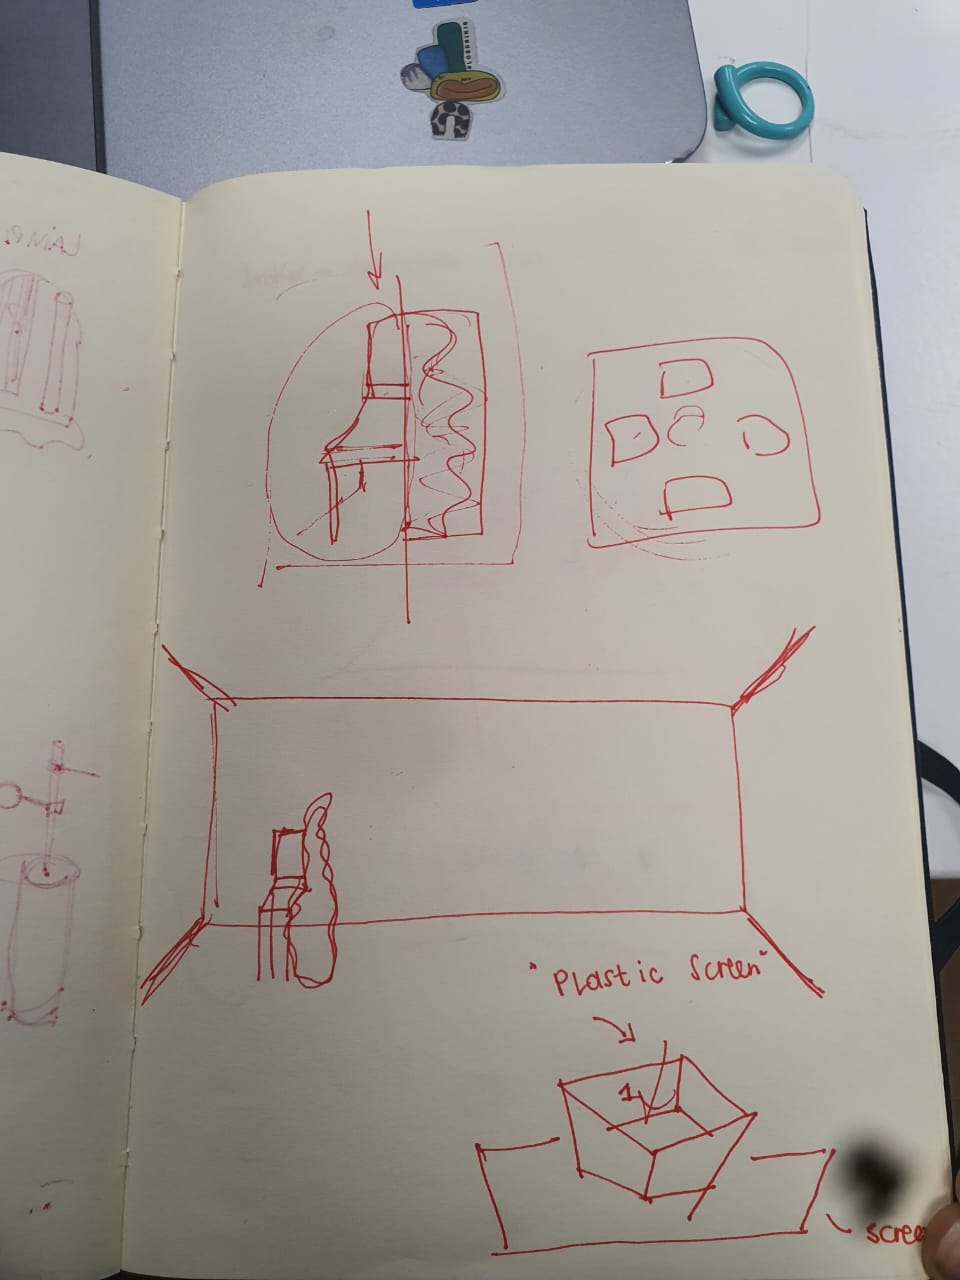 "Plastic Screen"
1
scree